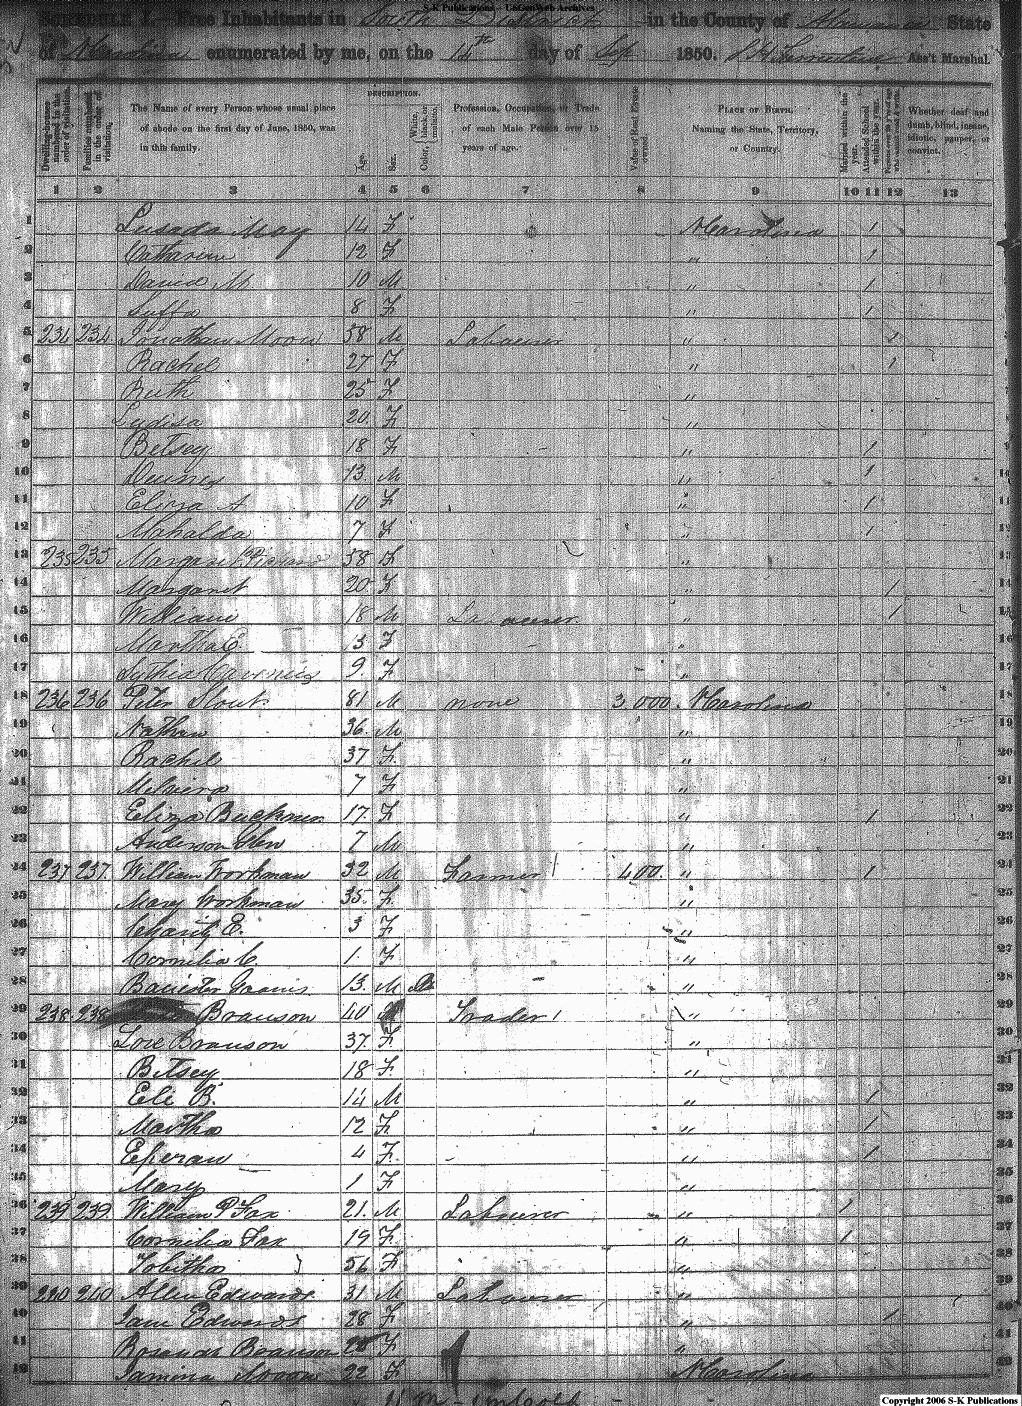 S-K Publications - UsGenWeb Archives
SCHEDULE I. - Free Inhabitants in South District in the County of Alamance State
of N Carolina enumerated by me, on the 14th day of Sep 1850. Ass't Marshal.
Dwelling-houses numbered in the order of visitation.
Families numbered in the order of visitation.
The Name of every Person whose usual place of abode on the first day of June, 1850, was in this family.
DESCRIPTION.
Age.
Sex.
Color, White, black, or mulatto.
Profession, Occupation, or Trade of each Male Person over 15 years of age.
Value of Real Estate owned.
PLACE OF BIRTH. Naming the State, Territory, or Country.
Married within the year.
Attended School within the year.
Whether deaf and dumb, blind, insane, idiotic, pauper, or convict.
1 2 3 4 5 6 7 8 9 10 11 12 13
1 May 14 F N Carolina 1 1
2 Catharine 12 F " 1 2
3 David M 10 M " 1 3
4 8 F " 1 4
5 234 234 Jonathan Moore 58 M Labourer " 1 5
6 Rachel 27 F " 1 6
7 Ruth 25 F " 7
8 20 F " 8
9 Betsey 18 F " 1 9
10 13 M " 1 10
11 Eliza A 10 F " 1 11
12 Mahalda 7 F " 1 12
13 235 235 Margaret 58 F " 13
14 Margaret 20 F " 1 14
15 William 18 M Labourer " 1 15
16 Martha E. 3 F " 16
17 9 F " 17
18 236 236 Peter Stout 81 M none 3,000 N Carolina 18
19 Nathan 36 M " 19
20 Rachel 37 F " 20
21 7 F " 21
22 Eliza Buckner 17 F " 1 22
23 Anderson Glen 7 M " 23
24 237 237 William Workman 32 M Farmer 400 " 1 24
25 Mary Workman 35 F " 25
26 Charity E. 3 F " 26
27 Cornelia C. 1 F " 27
28 13 M " 28
29 238 238 Branson 40 M Trader " 29
30 Branson 37 F " 30
31 Betsey 18 F " 31
32 Eli B. 14 M 1 32
33 Martha 12 F " 1 33
34 4 F " 1 34
35 Mary 1 F " 35
36 239 239 William P Fox 21 M Labourer " 1 36
37 Cornelia Fox 19 F " 1 37
38 Tobitha 56 F " 38
39 240 240 Allen Edwards 31 M Labourer " 39
40 Jane Edwards 28 F " 1 40
41 Branson F " 41
42 Moore 22 F N Carolina 42
Copyright 2006 S-K Publications